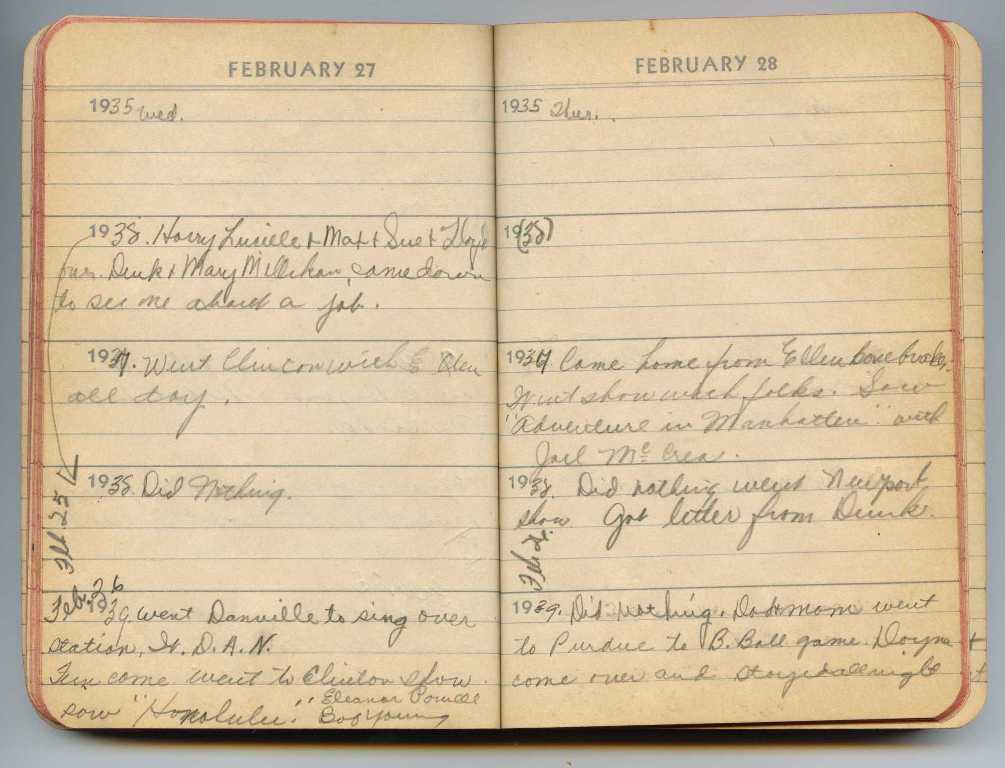 FEBRUARY 27
1935 Wed.
1938. Harry Lucille + Max + Sue + Lloyd
our. Dink + Mary Millikan, came down
to see me about a job.
1937. Went Clinton with Glen
all day.
Feb 25
1938. Did Nothing.
Feb. 26
1939. went Danville to sing over
station, D. A. N.
come went to Clinton show
saw "Honolulu." Eleanor Powell
Bob Young
FEBRUARY 28
1935 Thur.
19(38)
1937 Came home from Ellen
Went show with folks. Saw
"Adventure in Manhatten" with
Joel McCrea.
1938. Did nothing went Newport
show. Got letter from Dink.
Feb 2
1939. Did nothing. Dad + mom went
to Purdue to B. Ball game.
come over and stayed all night